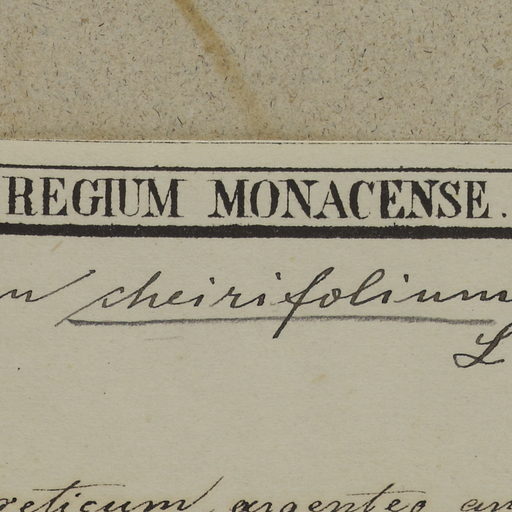 REGIUM MONACENSE.
cheirifolium
L
argenteo